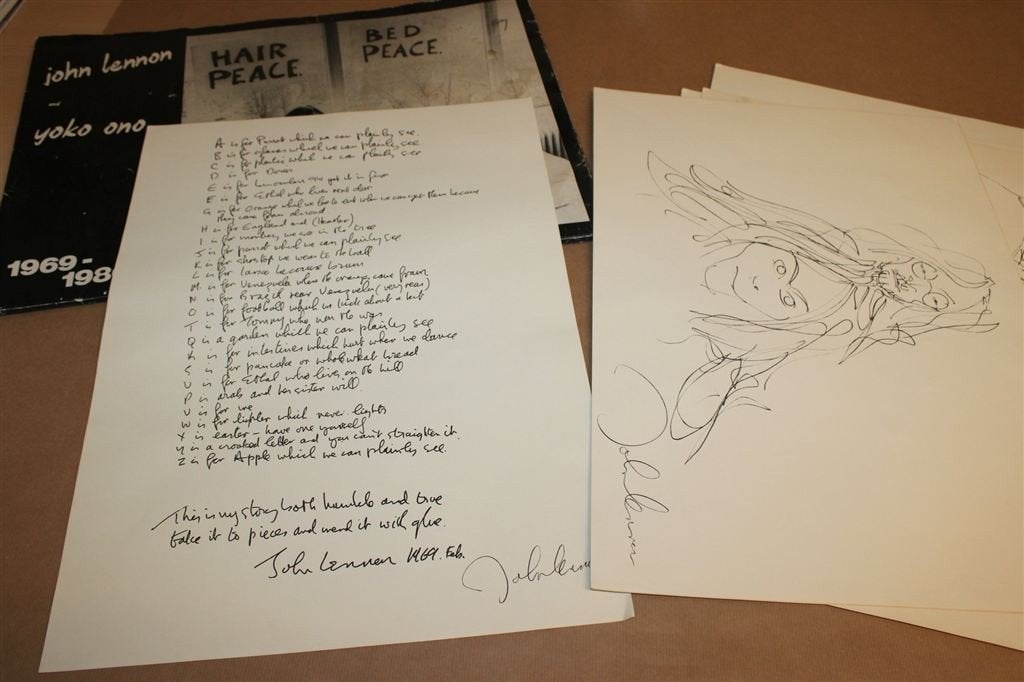 john lennon
-
yoko ono
HAIR
PEACE.
BED
PEACE.
1969-
198
A is for Parrot which we can plainly see
B is for glasses which we can plainly see
C is for plastic which we can plainly see
D is for Doris
E is for binoculars I'll get it in five
F is for Ethel who lives next door
G is for Orange which we love to eat when we can get them because
they come from abroad
H is for England and (Heather)
I is for monkey we see in the tree
J is for parrot which we can plainly see
K is for shoetop we wear to the ball
L is for Land because brown
M is for Venezuela where the oranges come from
N is for Brazil near Venezuela (very near)
O is for football which we kick about a bit
T is for Tommy who won the war
Q is a garden which we can plainly see
R is for intestines which hurt when we dance
S is for pancake or wholewheat bread
U is for Ethel who lives on the hill
P is arab and her sister will
V is for me
W is for lighter which never lights
X is easter - have one yourself
Y is a crooked letter and you can't straighten it
Z is for Apple which we can plainly see.
This is my story both humble and true
take it to pieces and mend it with glue.
John Lennon 1969. Feb.
John Lenn
John Lennon